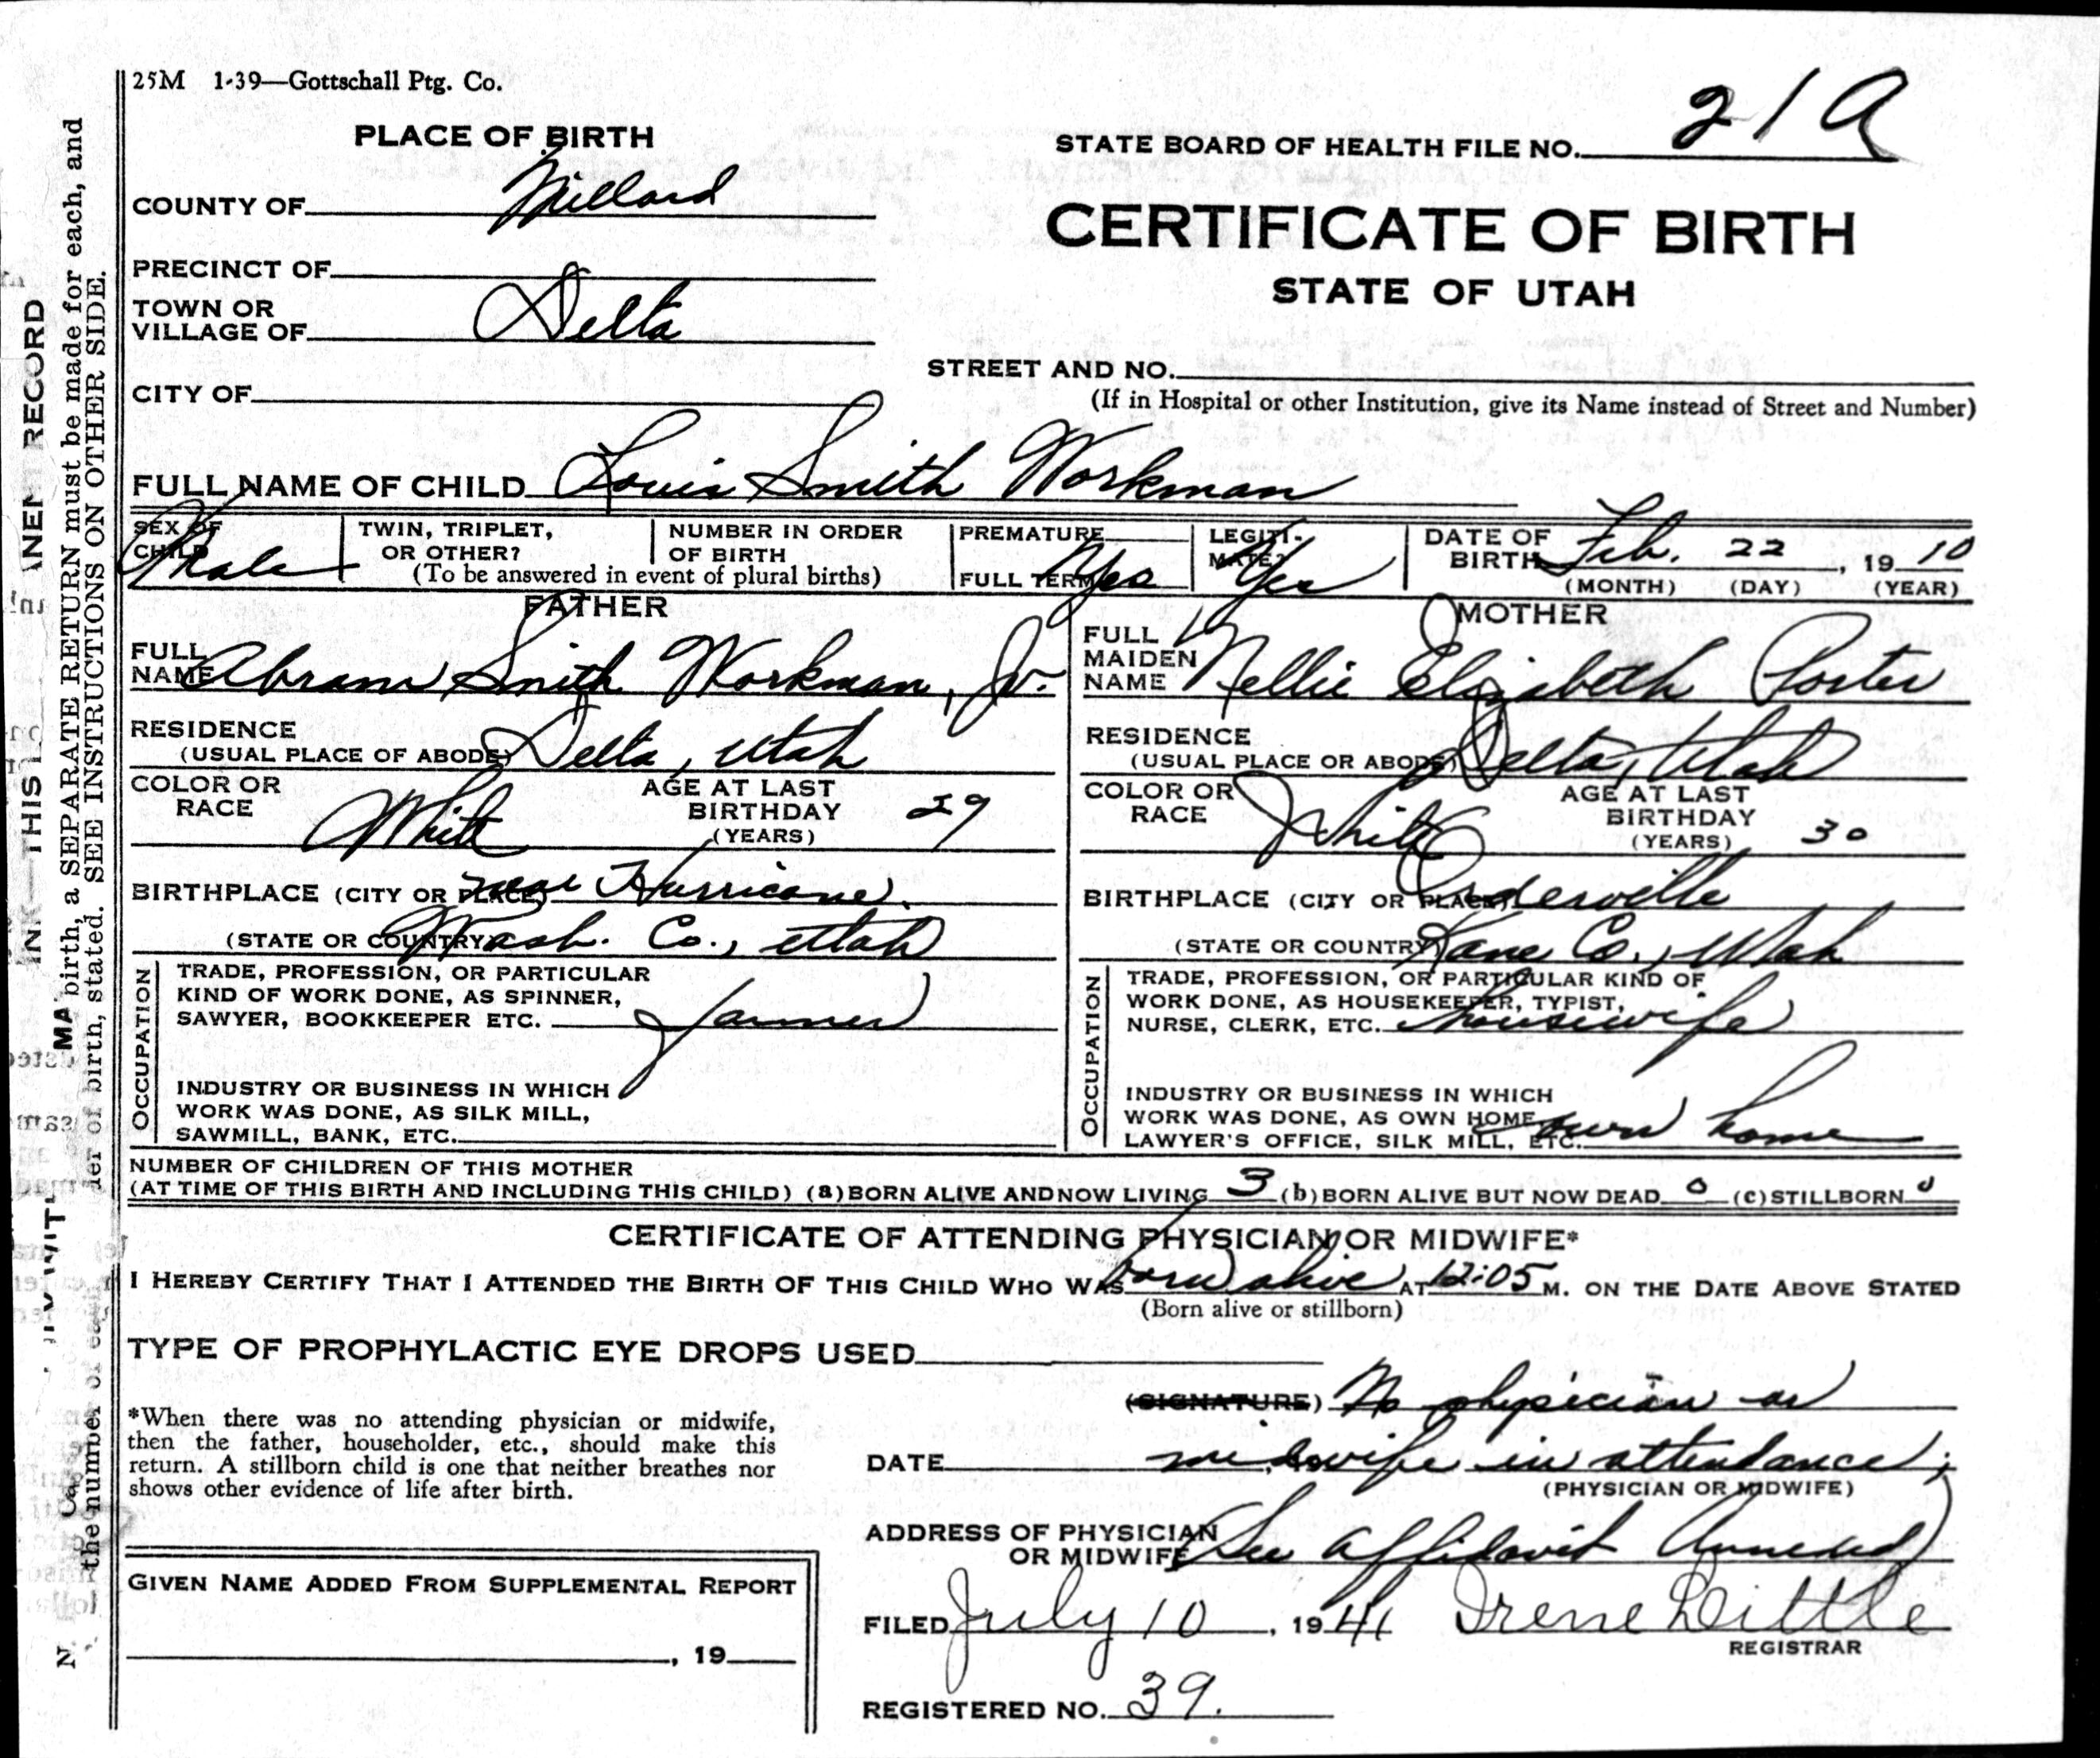 25M 1-39—Gottschall Ptg. Co.
PLACE OF BIRTH
STATE BOARD OF HEALTH FILE NO. 21A
COUNTY OF Millard
CERTIFICATE OF BIRTH
STATE OF UTAH
PRECINCT OF
TOWN OR
VILLAGE OF Delta
STREET AND NO.
(If in Hospital or other Institution, give its Name instead of Street and Number)
CITY OF
FULL NAME OF CHILD Louis Smith Workman
SEX OF
CHILD Male
TWIN, TRIPLET,
OR OTHER?
NUMBER IN ORDER
OF BIRTH
(To be answered in event of plural births)
PREMATURE
FULL TERM Yes
LEGITI-
MATE? Yes
DATE OF
BIRTH Feb. 22, 19 10
(MONTH) (DAY) (YEAR)
FATHER
FULL
NAME Abram Smith Workman, Jr.
RESIDENCE
(USUAL PLACE OF ABODE) Delta, Utah
COLOR OR
RACE White
AGE AT LAST
BIRTHDAY 29
(YEARS)
BIRTHPLACE (CITY OR PLACE) near Hurricane.
(STATE OR COUNTRY) Wash. Co., Utah
OCCUPATION
TRADE, PROFESSION, OR PARTICULAR
KIND OF WORK DONE, AS SPINNER,
SAWYER, BOOKKEEPER ETC. Farmer
INDUSTRY OR BUSINESS IN WHICH
WORK WAS DONE, AS SILK MILL,
SAWMILL, BANK, ETC.
MOTHER
FULL
MAIDEN
NAME Nellie Elizabeth Porter
RESIDENCE
(USUAL PLACE OR ABODE) Delta, Utah
COLOR OR
RACE White
AGE AT LAST
BIRTHDAY 30
(YEARS)
BIRTHPLACE (CITY OR PLACE) Orderville
(STATE OR COUNTRY) Kane Co., Utah
OCCUPATION
TRADE, PROFESSION, OR PARTICULAR KIND OF
WORK DONE, AS HOUSEKEEPER, TYPIST,
NURSE, CLERK, ETC. housewife
INDUSTRY OR BUSINESS IN WHICH
WORK WAS DONE, AS OWN HOME,
LAWYER'S OFFICE, SILK MILL, ETC. own home
NUMBER OF CHILDREN OF THIS MOTHER
(AT TIME OF THIS BIRTH AND INCLUDING THIS CHILD) (a) BORN ALIVE AND NOW LIVING 3 (b) BORN ALIVE BUT NOW DEAD 0 (c) STILLBORN 0
CERTIFICATE OF ATTENDING PHYSICIAN OR MIDWIFE*
I HEREBY CERTIFY THAT I ATTENDED THE BIRTH OF THIS CHILD WHO WAS born alive AT 12:05 M. ON THE DATE ABOVE STATED
(Born alive or stillborn)
TYPE OF PROPHYLACTIC EYE DROPS USED
*When there was no attending physician or midwife,
then the father, householder, etc., should make this
return. A stillborn child is one that neither breathes nor
shows other evidence of life after birth.
(SIGNATURE) No physician or
DATE midwife in attendance;
(PHYSICIAN OR MIDWIFE)
ADDRESS OF PHYSICIAN
OR MIDWIFE See affidavit Annexed
FILED July 10, 1941 Irene Little
REGISTRAR
REGISTERED NO. 39.
GIVEN NAME ADDED FROM SUPPLEMENTAL REPORT
, 19
INK—THIS ANENT RECORD
birth, a SEPARATE RETURN must be made for each, and
the number of each, in order of birth, stated. SEE INSTRUCTIONS ON OTHER SIDE.